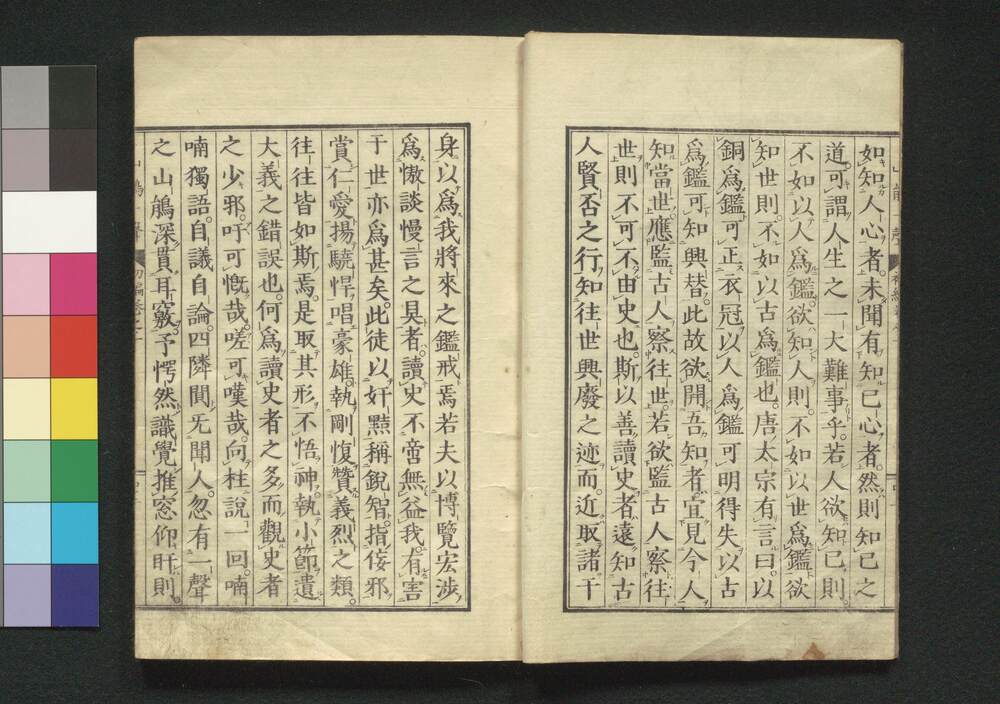 如知人心者。未聞有知己心者。然則知己之
道。可謂人生之一大難事乎。若人欲知己則。
不如以人爲鑑。欲知人則。不如以世爲鑑欲
知世則。不如以古爲鑑也。唐太宗有言曰。以
銅爲鑑可正衣冠以人爲鑑可明得失以古
爲鑑可知興替。此故欲開吾知者。宜見今人
知當世應監古人察往世。若欲監古人察往
世則不可不由史也。斯以善讀史者。遠知古
人賢否之行知往世興廢之迹而。近取諸干
身以爲我將來之鑑戒焉若夫以博覽宏渉
爲慠談慢言之具者。讀史不啻無益我。有害
于世亦爲甚矣。此徒以奸黠稱銳智。指侫邪
賞仁愛揚驍悍唱豪雄。執剛愎贊義烈之類。
往往皆如斯焉。是取其形不悟神。執小節遺
大義之錯誤也。何爲讀史者之多而觀史者
之少邪。吁可慨哉。嗟可嘆哉。向柱説一回。喃
喃獨語。自議自論。四隣間旡聞人。忽有一聲
之山鵑深貫耳竅予愕然識覺推窓仰盱則。
初編巻之一